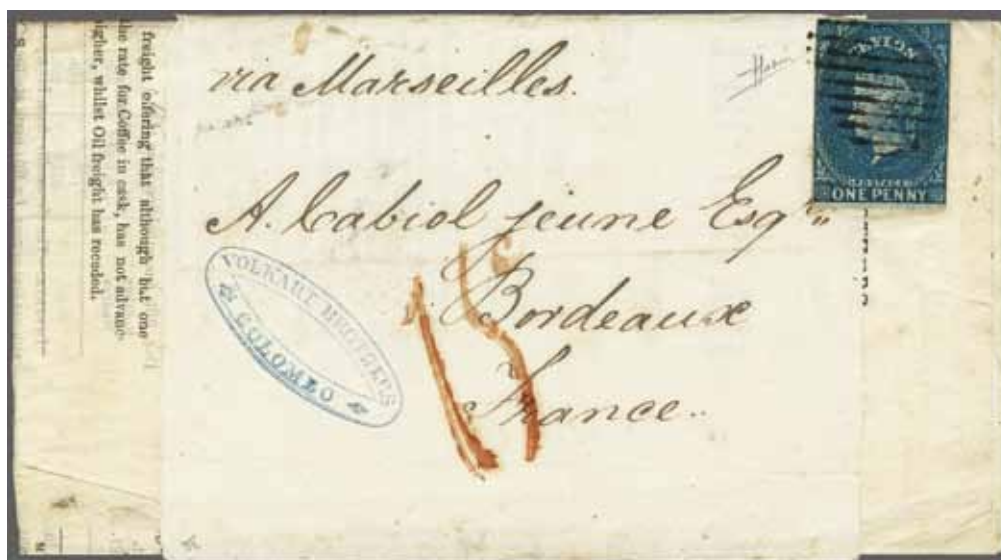 freight offering that although but one
the rate for Coffee in cask, has not advanc
higher, whilst Oil freight has receded.
via Marseilles.
CEYLON
ONE PENNY
A. Cabiol jeune Esqre
Bordeaux
France..
VOLKART BROTHERS
COLOMBO
15